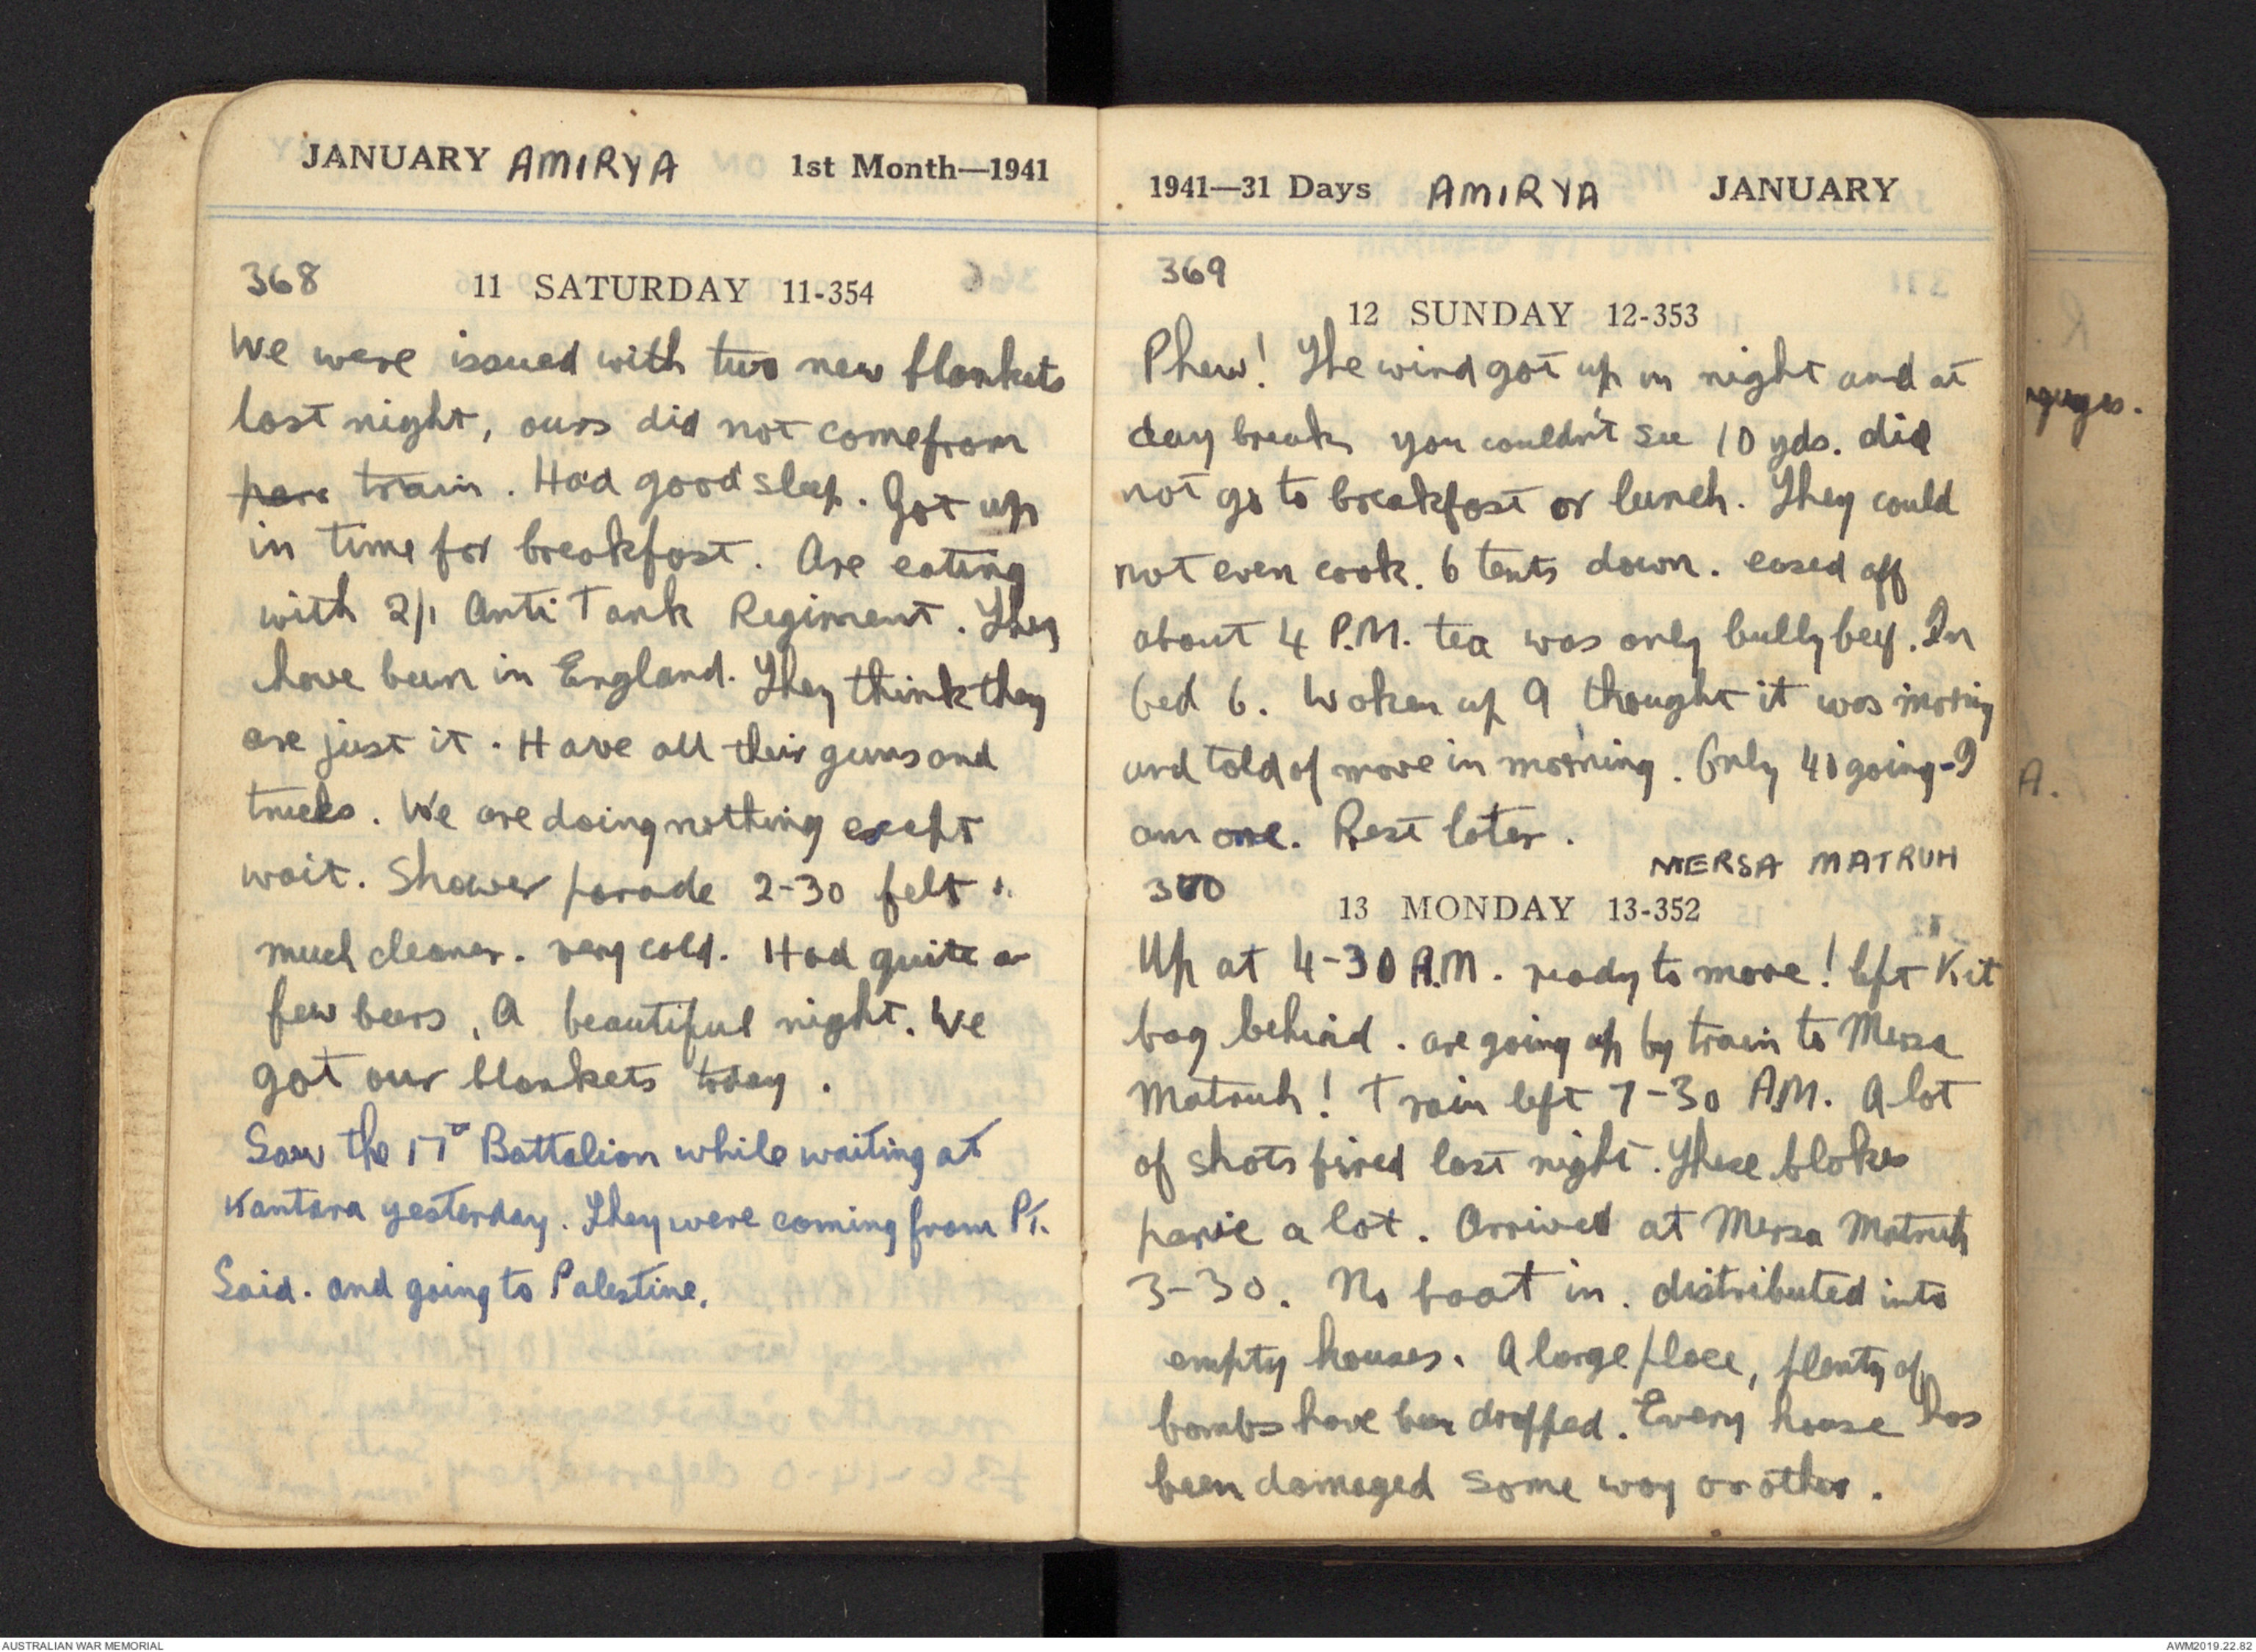 JANUARY AMIRYA 1st Month—1941
368
11 SATURDAY 11-354
We were issued with two new blankets
last night, ours did not come from
train. Had good sleep. Got up
in time for breakfast. Are eating
with 2/1 Anti Tank Regiment. They
have been in England. They think they
are just it. Have all their guns and
trucks. We are doing nothing except
wait. Shower parade 2-30 felt
much cleaner. very cold. Had quite a
few beers, A beautiful night. We
got our blankets today.
Saw the 17th Battalion while waiting at
Kantara yesterday. They were coming from Pt.
Said. and going to Palestine.
1941—31 Days AMIRYA JANUARY
369
12 SUNDAY 12-353
Phew! The wind got up in night and at
day break you couldn't see 10 yds. did
not go to breakfast or lunch. They could
not even cook. 6 tents down. eased off
about 4 P.M. tea was only bully beef. In
bed 6. Woken up 9 thought it was morning
and told of move in morning. Only 40 going - I
am one. Rest later.
MERSA MATRUH
370
13 MONDAY 13-352
Up at 4-30 A.M. ready to move! left Kit
bag behind. are going up by train to Mersa
Matruh! Train left 7-30 A.M. A lot
of shots fired last night. These blokes
panic a lot. Arrived at Mersa Matruh
3-30. No boat in. distributed into
empty houses. A large place, plenty of
bombs have been dropped. Every house has
been damaged some way or other.
A.
AUSTRALIAN WAR MEMORIAL
AWM2019.22.82